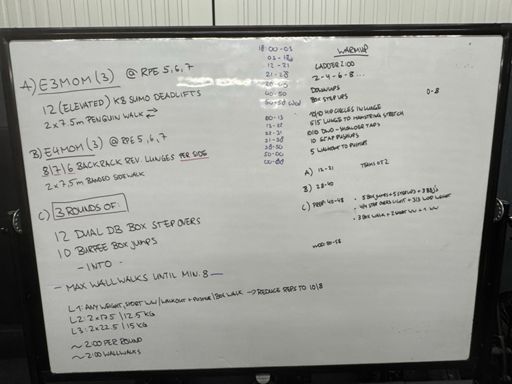 A) E3MOM (3) @ RPE 5,6,7
12 (ELEVATED) KB SUMO DEADLIFTS
2 x 7.5m PENGUIN WALK
B) E4MOM (3) @ RPE 5,6,7
8/7/6 BACKRACK REV. LUNGES PER SIDE
2 x 7.5m BANDED SIDEWALK
C) 3 ROUNDS OF:
12 DUAL DB BOX STEP OVERS
10 BURPEE BOX JUMPS
- INTO -
- MAX WALLWALKS UNTIL MIN. 8 -
L1: ANY WEIGHT, SHORT WW / WALKOUT + PUSHUP / BOX WALK → REDUCE REPS TO 10/8
L2: 2x17.5 / 12.5 KG
L3: 2x22.5 / 15 KG
~ 2:00 PER ROUND
~ 2:00 WALLWALKS
18:00-03
03-12
12-21
21-28
28-40
40-50
50-58 WOD
00-13
13-22
22-31
31-38
38-50
50-00
WARMUP
LADDER 2:00
2-4-6-8...
DOWNUPS
BOX STEP UPS
0-8
10/10 HIP CIRCLES IN LUNGE
5/5 LUNGE TO HAMSTRING STRETCH
10/10 DWD-SHOULDER TAPS
10 SCAP PUSHUPS
5 WALKOUT TO PUSHUP
A) 12-21
B) 28-40
C) PREP: 40-48
• 3 BOX WALK + 2 SHORT WW + 1 WW
WOD: 50-58